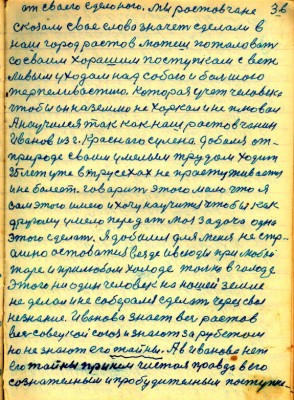 от своего сделоного. Мы ростовчане 36
скозали свае слово значет сделали в
наш город ростов можеш пожаловат
со своим хорашим поступкам с веж
ливым уходам над собою и болшого
терпеливастию. Которая учет человека
чтобы он на землю не харкал и не плювал
А научился так как наш ростовчанин
Иванов из г. Красного сулена добелся от
природе своим умелым трудом ходит
35 лет уже в трусехах не простуживаетця
и не болеет. говарит этого мало что я
сам этого имею и хочу научить чтобы как
другому умело передат моя задача одно
этого сделать. Я добился для меня не стр-
ашно оставатця везде и всюди при любой
жаре и при любом холоде толко в голоде
Этого ни один человек на нашей земле
не делал и не соберался сделать через свае
незнание. Иванова знает весь ростов
весь советский союз и знают за рубежом
но не знают его тайны. А в Иванова нет
его тайны прином чистая правда в его
сознателным и пробудителным поступки-